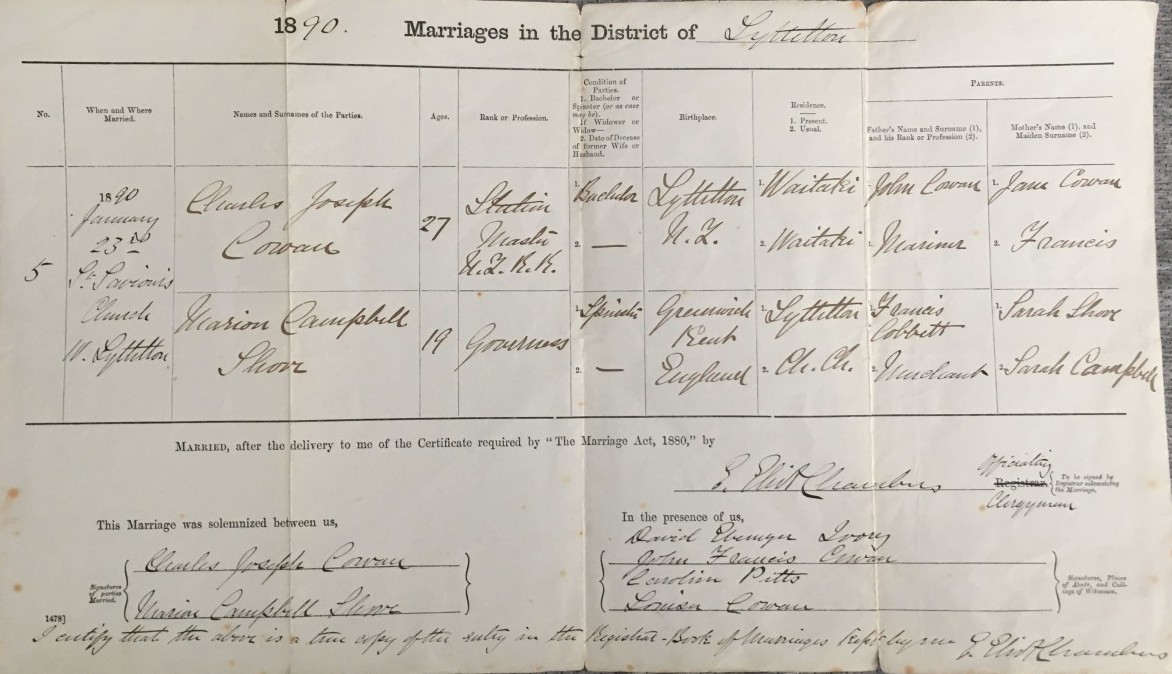 1890. Marriages in the District of Lyttelton
No.
When and Where
Married.
Names and Surnames of the Parties.
Ages.
Rank or Profession.
Condition of
Parties.
1. Bachelor or
Spinster (or as case
may be).
If Widower or
Widow—
2. Date of Decease
of former Wife or
Husband.
Birthplace.
Residence.
1. Present.
2. Usual.
PARENTS.
Father's Name and Surname (1),
and his Rank or Profession (2).
Mother's Name (1), and
Maiden Surname (2).
5
1890
January
23rd
St. Saviour's
Church
W. Lyttelton
Charles Joseph
Cowan
27
Station
Master
N.Z.R.R.
1. Bachelor
2. —
Lyttelton
N.Z.
1. Waitaki
2. Waitaki
1. John Cowan
2. Mariner
1. Jane Cowan
2. Francis
Marion Campbell
Shove
19
Governess
1. Spinster
2. —
Greenwich
Kent
England
1. Lyttelton
2. Ch. Ch.
1. Francis
Cobbett
2. Merchant
1. Sarah Shove
2. Sarah Campbell
MARRIED, after the delivery to me of the Certificate required by "The Marriage Act, 1880," by
E. Eliot Chambers
Officiating
Registrar.
Clergyman
To be signed by
Registrar solemnizing
the Marriage.
This Marriage was solemnized between us,
Signatures
of parties
Married.
Charles Joseph Cowan
Marion Campbell Shove
In the presence of us,
David Ebenezer Ivory
John Francis Cowan
Caroline Pitts
Louisa Cowan
Signatures, Places
of Abode, and Call-
ings of Witnesses.
1478]
I certify that the above is a true copy of the entry in the Registrar-Book of Marriages kept by me E. Eliot Chambers